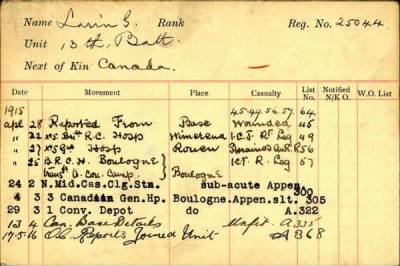 Name Lavin G. Rank Reg. No. 25044
Unit 13th. Batt.
Next of Kin Canada.
Date Movement Place Casualty List No. Notified N/K O. W.O. List
1915 45-49.56.57. 64
apl 28 Reported From Base Wounded 45
" 22 No 5 Brit R.C. Hosp Wimereux 1.C.T. Rt Leg 49
" 27 No 5 Gen Hosp Rouen Remains 56
" 25 B.R.C.H. Boulogne 1CT. R. Leg 57
trans to Con. Camp. Boulogne
24 2 N.Mid.Cas.Clg.Stn. sub-acute Appen. 300
4 3 3 Canadian Gen.Hp. Boulogne. Appen.slt. 305
29 3 1 Conv. Depot do A.322
13 4 Can. Base Details Unfit A335
17.5.16 O.C. Reports Joined Unit A368